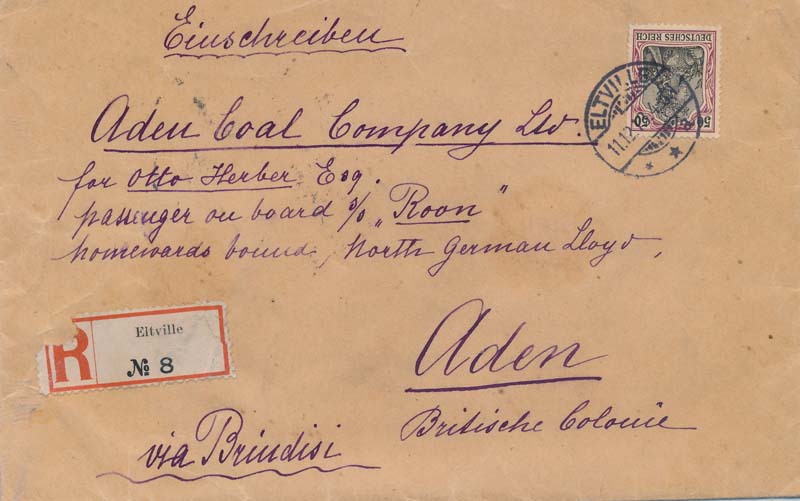 Einschreiben
DEUTSCHES REICH
50 50
ELTVILLE
11.12
Aden Coal Company Ltd.
for Otto Herber Esq.
passenger on board s/s „Roon"
homewards bound, North German Lloyd,
R Eltville
№ 8
Aden
Britische Colonie
via Brindisi